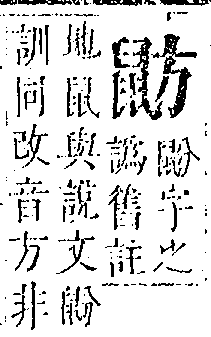 鼢字之
譌舊註
地鼠與說文鼢
訓同改音方非